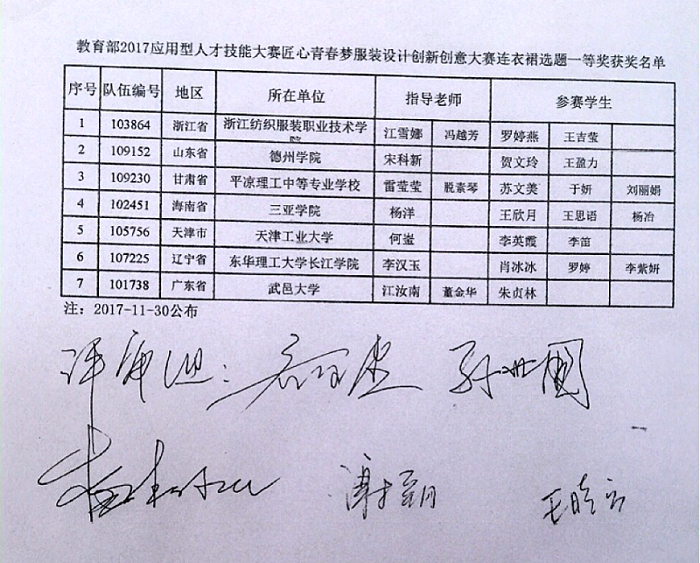 教育部2017应用型人才技能大赛匠心青春梦服装设计创新创意大赛连衣裙选题一等奖获奖名单
序号 队伍编号 地区 所在单位 指导老师 参赛学生
1 103864 浙江省 浙江纺织服装职业技术学院 江雪娜 冯越芳 罗婷燕 王吉莹
2 109152 山东省 德州学院 宋科新 贺文玲 王盈力
3 109230 甘肃省 平凉理工中等专业学校 雷莹莹 脱素琴 苏文美 于妍 刘丽娟
4 102451 海南省 三亚学院 杨洋 王欣月 王思语 杨冶
5 105756 天津市 天津工业大学 何崟 李英霞 李笛
6 107225 辽宁省 东华理工大学长江学院 李汉玉 肖冰冰 罗婷 李紫妍
7 101738 广东省 武邑大学 江汝南 董金华 朱贞林
注：2017-11-30公布
评审组：